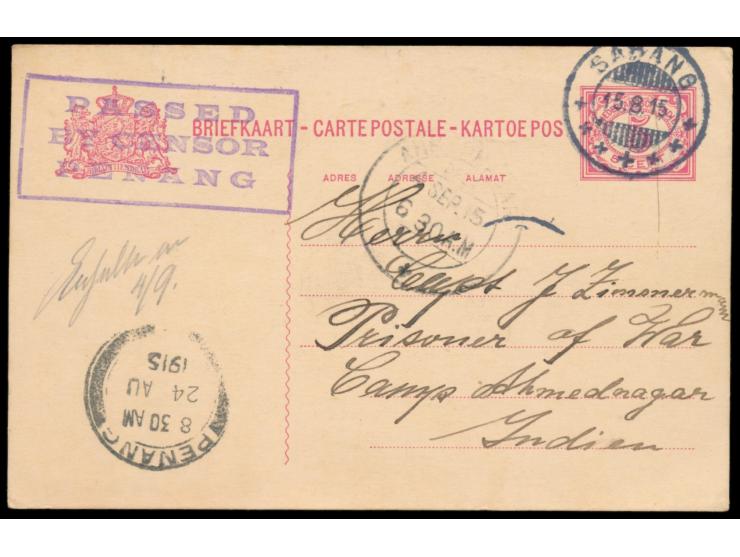 PASSED
BY CENSOR
PENANG
BRIEFKAART - CARTE POSTALE - KARTOE POS
SABANG
15.8.15
5
ADRES ADRESSE ALAMAT
SEP.15
6 30 A.M
Herrn
Capt J Zimmermann
Prisoner of War
Camp Ahmednagar
Indien
4/9.
PENANG
8 30 AM
24 AU
1915